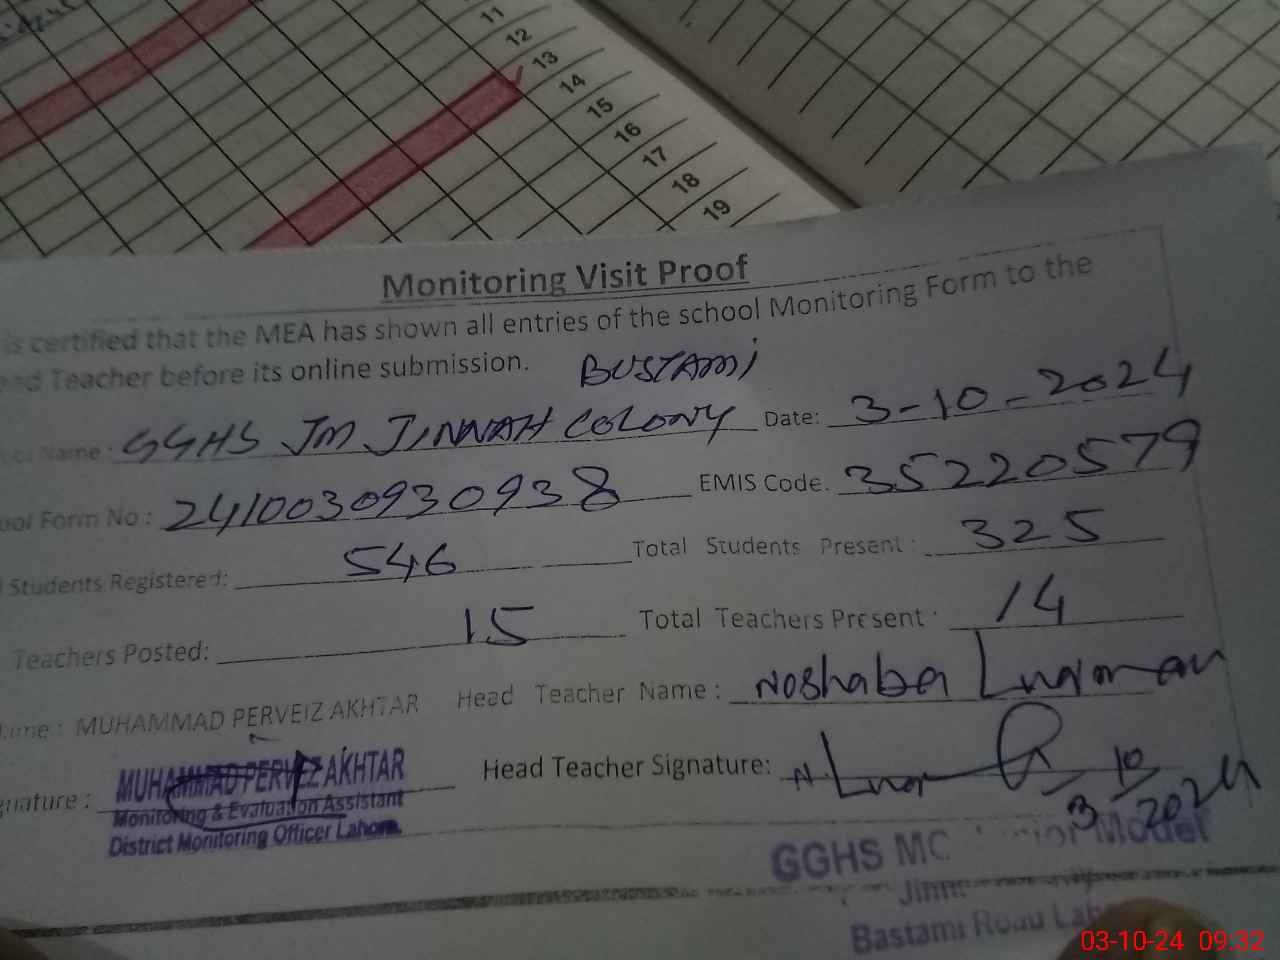 11
12
13
14
15
16
17
18
19
Monitoring Visit Proof
is certified that the MEA has shown all entries of the school Monitoring Form to the
ead Teacher before its online submission. BUSTAMI
ool Name : GGHS JM JINNAH COLONY Date: 3-10-2024
ool Form No : 2410030930938 EMIS Code. 35220579
l Students Registered: 546 Total Students Present : 325
Teachers Posted: 15 Total Teachers Present : 14
ame : MUHAMMAD PERVEIZ AKHTAR Head Teacher Name : Noshaba Luqman
gnature : MUHAMMAD PERVEZ AKHTAR Head Teacher Signature: N. Luqman
Monitoring & Evaluation Assistant 3/10/2024
District Monitoring Officer Lahore.
GGHS MC Junior Model
Jinn
Bastami Road Lah
03-10-24 09:32